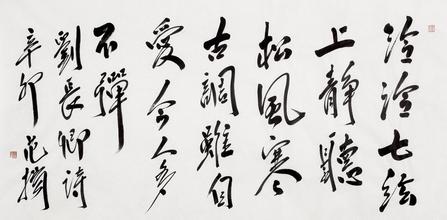 泠泠七絃
上靜聽
松風寒
古調雖自
愛今人多
不彈
劉長卿詩
辛卯